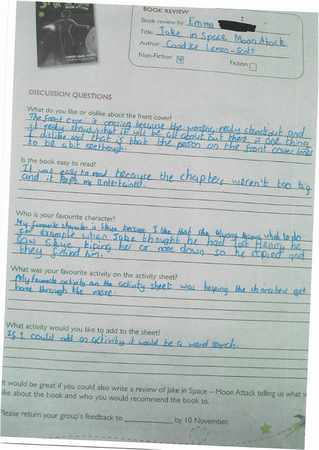 BOOK REVIEW
Book review by: Emma
Title: Jake in Space Moon Atack
Author: Candice Lemon-Scott
Non-Fiction
Fiction
DISCUSSION QUESTIONS
What do you like or dislike about the front cover?
The front cover is amazing because the wording really stands out and
it really shows what it will be all about but there is one thing
I dislike and that is that the person on the front cover looks
to be a bit seethough.
Is the book easy to read?
It was easy to read because the chapters weren't too big
and it kept me entertained.
Who is your favourite character?
My favourite character is Skye because I like that she always knows what to do
for example when Jake thought he had lost Henry he
saw Skye tiping her car nose down so he copied and
they found him.
What was your favourite activity on the activity sheet?
My favourite activity on the activity sheet was helping the characters get
home through the maze.
What activity would you like to add to the sheet?
If I could add an activity it would be a word search.
It would be great if you could also write a review of Jake in Space – Moon Attack telling us what y
like about the book and who you would recommend the book to.
Please return your group's feedback to by 10 November.